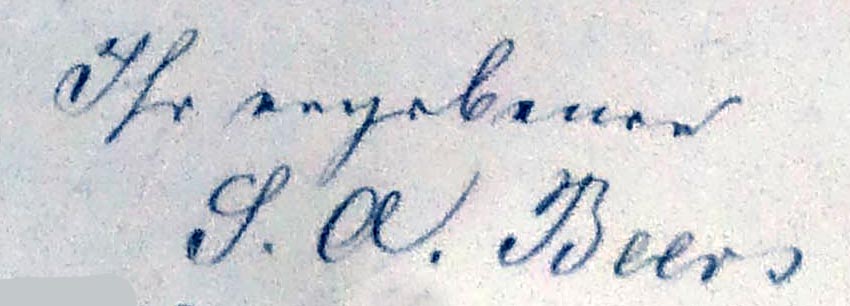 Ihr ergebener
S. A. Beers